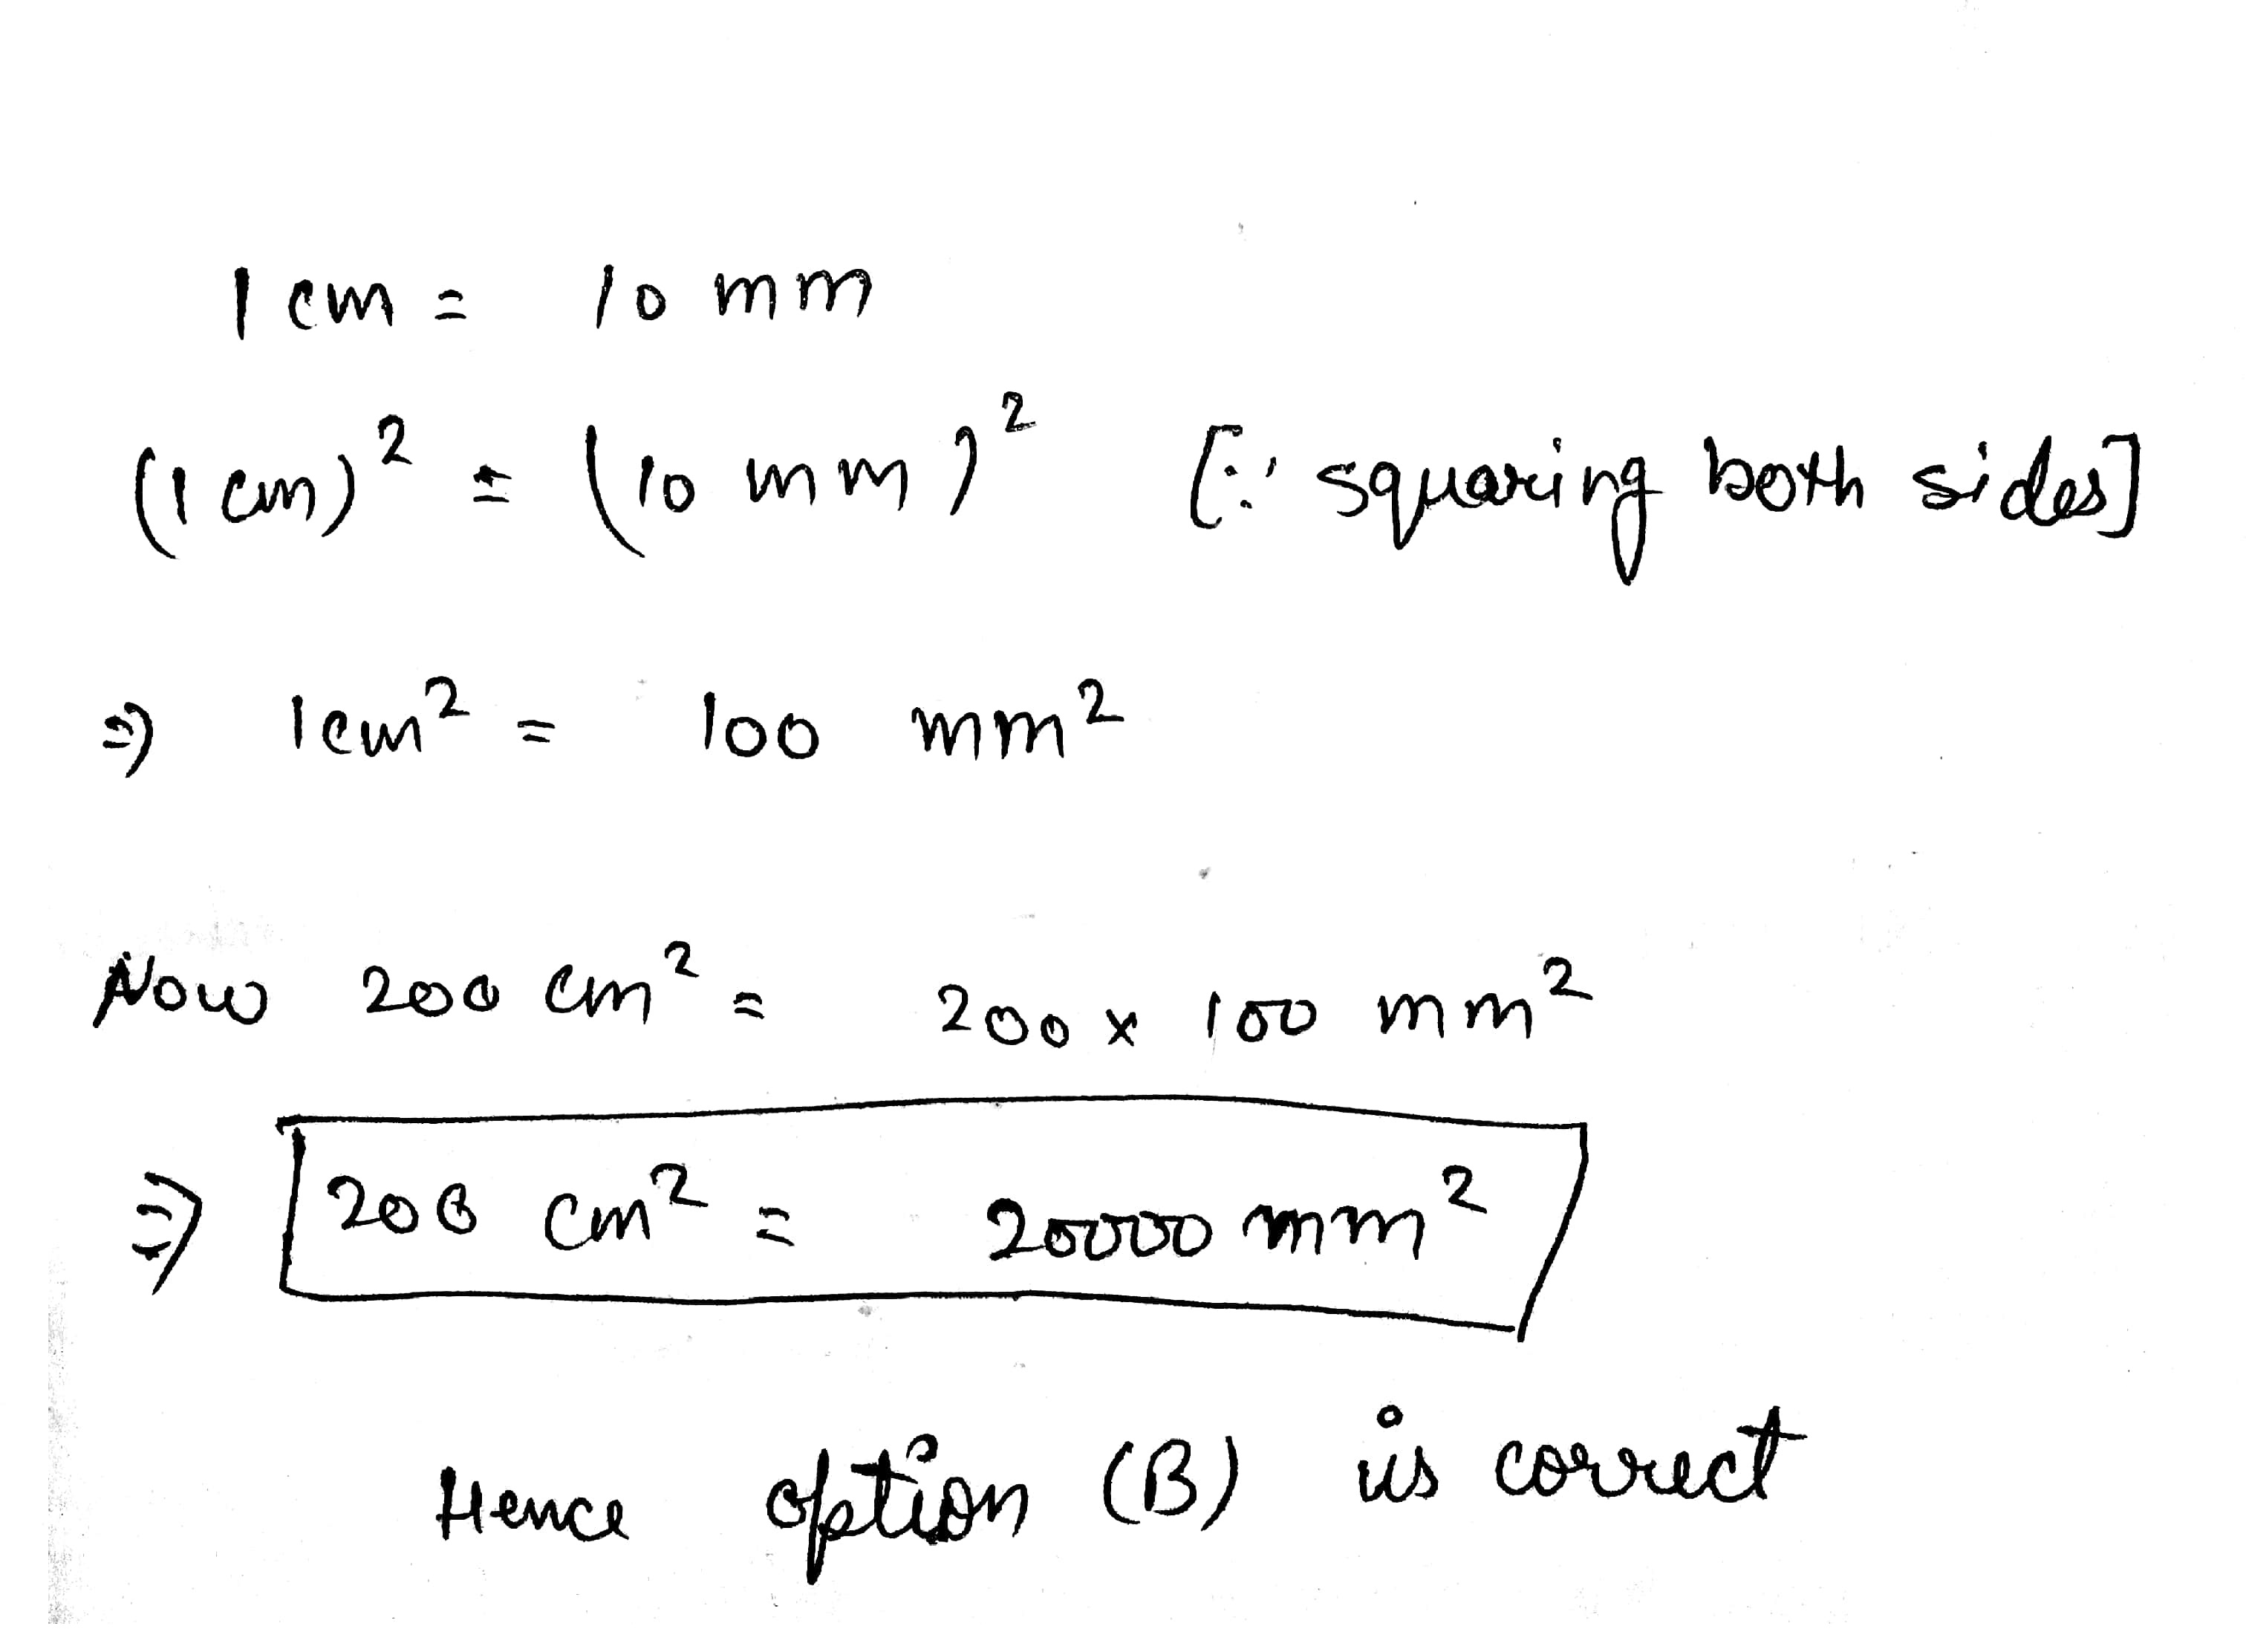 1 cm = 10 mm
(1 cm)² = (10 mm)² [∵ squaring both sides]
⇒ 1cm² = 100 mm²
Now 200 cm² = 200 x 100 mm²
⇒ 200 cm² = 20000 mm²
Hence option (B) is correct